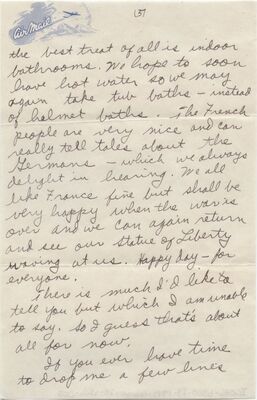 (3)
Air Mail
the best treat of all is indoor
bathrooms. We hope to soon
have hot water so we may
again take tub baths - instead
of helmet baths. The French
people are very nice and can
really tell tales about the
Germans - which we always
delight in hearing. We all
like France fine but shall be
very happy when the war is
over and we can again return
and see our Statue of Liberty
waving at us. Happy day - for
everyone.
There is much I'd like to
tell you but which I am unable
to say. So I guess that's about
all for now.
If you ever have time
to drop me a few lines